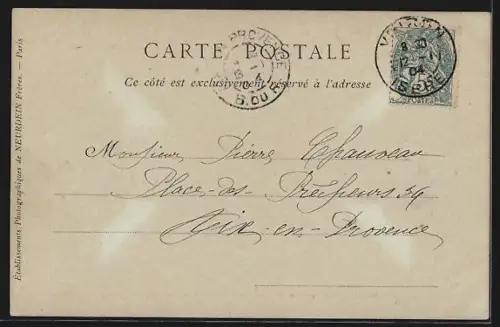 CARTE POSTALE
Ce côté est exclusivement réservé à l'adresse
VOIRON
ISÈRE
04
PROVENCE
B. DU R.
Monsieur Pierre Chauveau
Place des Prêcheurs 39
Aix-en-Provence
Établissements Photographiques de NEURDEIN Frères. — Paris